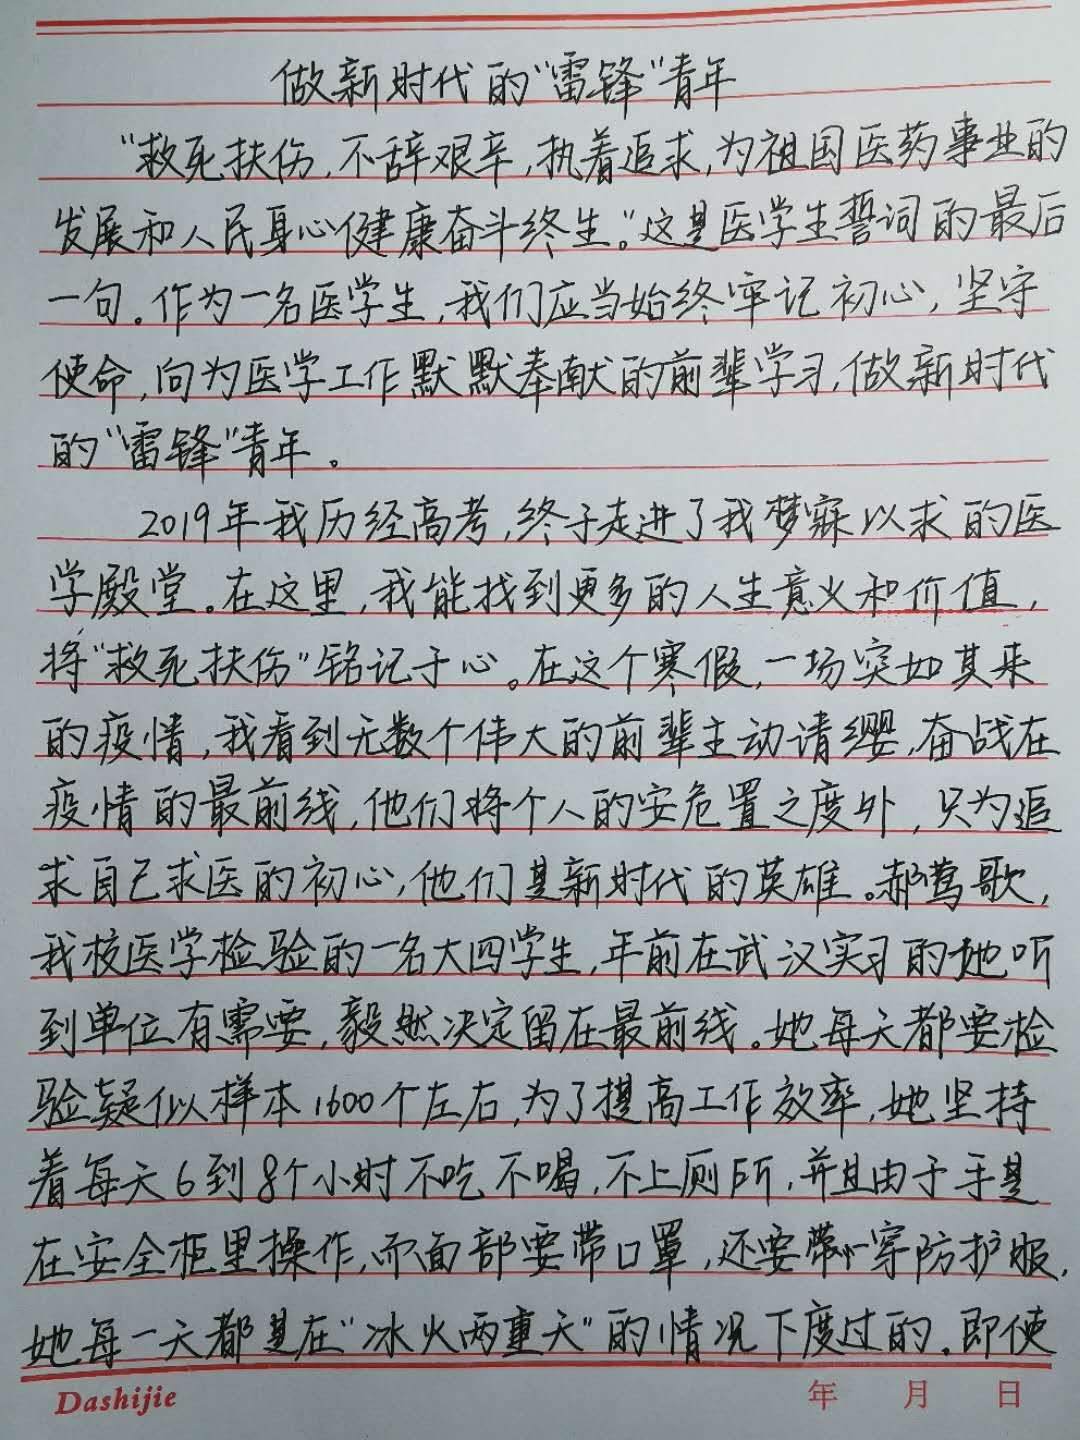 做新时代的“雷锋”青年
“救死扶伤,不辞艰辛,执着追求,为祖国医药事业的
发展和人民身心健康奋斗终生。”这是医学生誓词的最后
一句。作为一名医学生,我们应当始终牢记初心,坚守
使命,向为医学工作默默奉献的前辈学习,做新时代
的“雷锋”青年。
2019年我历经高考,终于走进了我梦寐以求的医
学殿堂。在这里,我能找到更多的人生意义和价值,
将“救死扶伤”铭记于心。在这个寒假,一场突如其来
的疫情,我看到无数个伟大的前辈主动请缨,奋战在
疫情的最前线,他们将个人的安危置之度外,只为追
求自己求医的初心,他们是新时代的英雄。郝莺歌,
我校医学检验的一名大四学生,年前在武汉实习的她听
到单位有需要,毅然决定留在最前线。她每天都要检
验疑似样本1600个左右,为了提高工作效率,她坚持
着每天6到8个小时不吃不喝,不上厕所,并且由于手是
在安全柜里操作,而面部要带口罩,还要穿防护服,
她每一天都是在“冰火两重天”的情况下度过的。即使
Dashijie
年 月 日